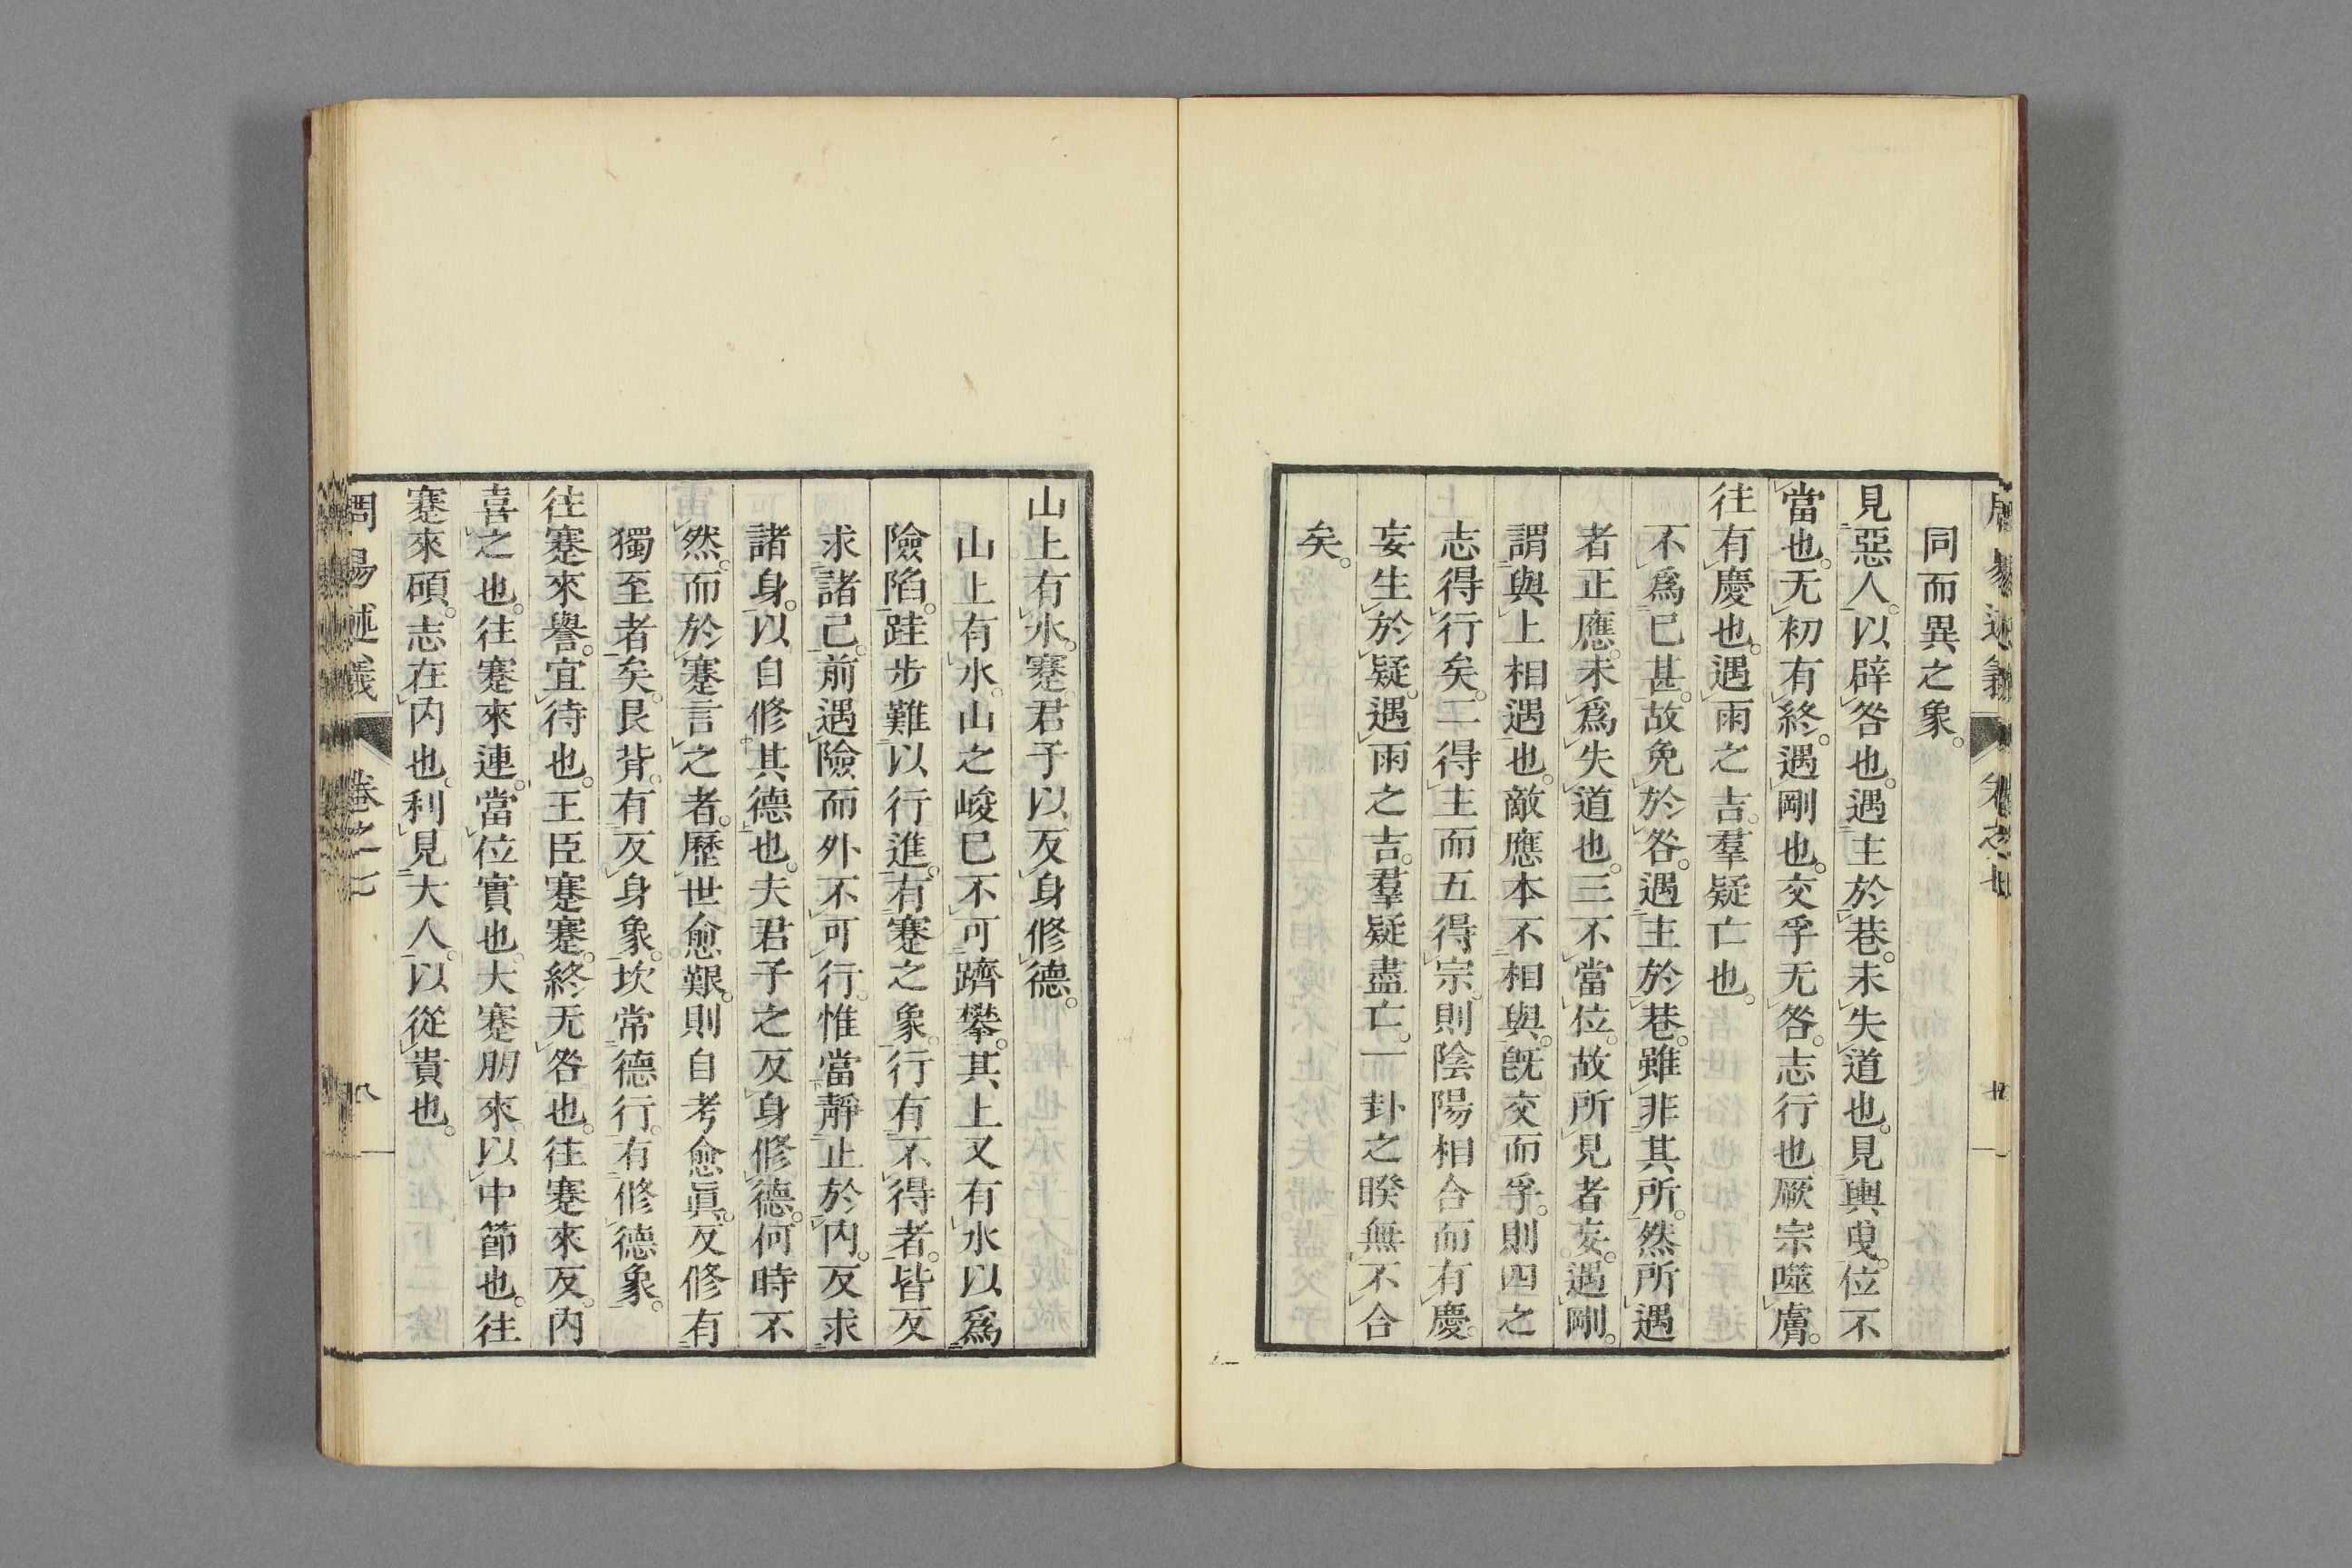 同而異之象。
見惡人。以辟咎也。遇主於巷。未失道也。見輿曳。位不
當也。无初有終。遇剛也。交孚无咎。志行也。厥宗噬膚。
往有慶也。遇雨之吉。羣疑亡也。
不爲已甚。故免於咎。遇主於巷。雖非其所。然所遇
者正應。未爲失道也。三不當位。故所見者妄。遇剛。
謂與上相遇也。敵應本不相與。旣交而孚。則四之
志得行矣。二得主而五得宗。則陰陽相合而有慶。
妄生於疑。遇雨之吉。羣疑盡亡。一卦之睽無不合
矣。
山上有水。蹇。君子以反身修德。
山上有水。山之峻已不可躋攀。其上又有水以爲
險陷。跬步難以行進。有蹇之象。行有不得者。皆反
求諸己。前遇險而外不可行。惟當靜止於內。反求
諸身。以自修其德也。夫君子之反身修德。何時不
然。而於蹇言之者。歷世愈艱。則自考愈眞。反修有
獨至者矣。艮背。有反身象。坎常德行。有修德象。
往蹇來譽。宜待也。王臣蹇蹇。終无咎也。往蹇來反。內
喜之也。往蹇來連。當位實也。大蹇朋來。以中節也。往
蹇來碩。志在內也。利見大人。以從貴也。
周易述義 卷之七 八